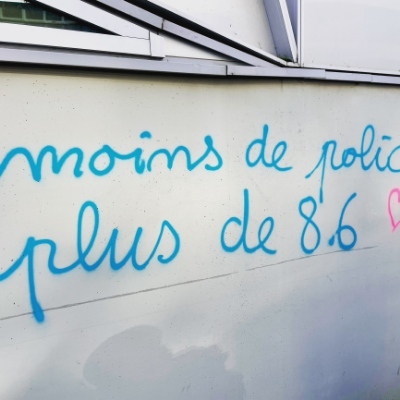 moins de polic
plus de 8.6